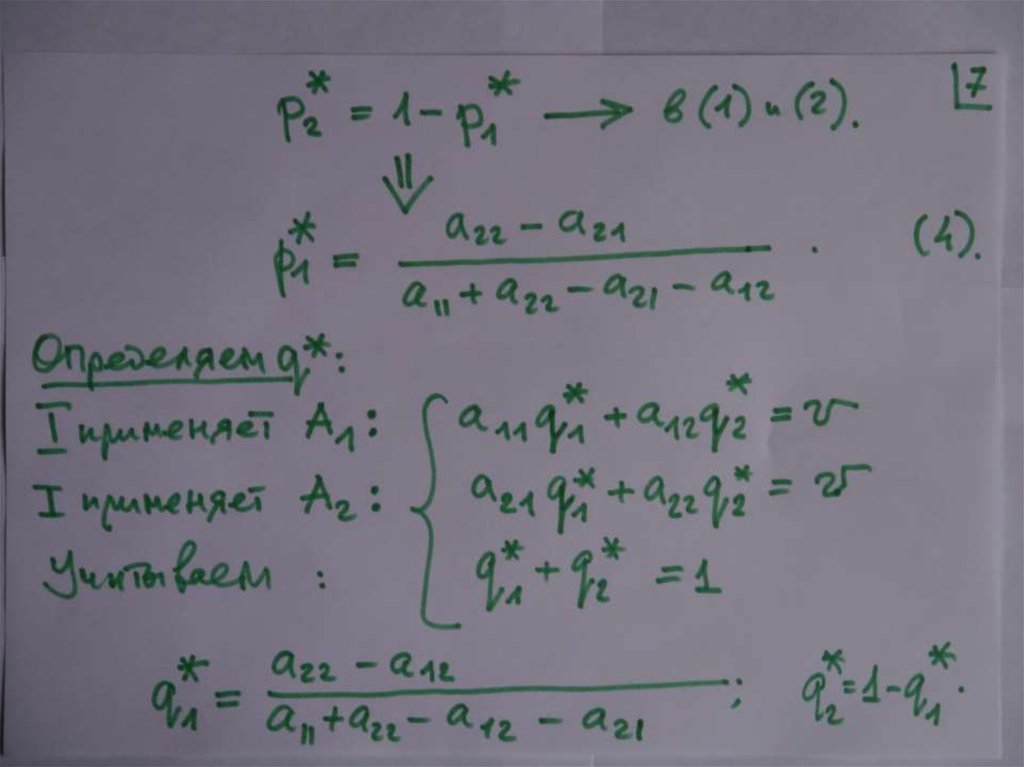 p₂* = 1 − p₁* → в (1) и (2). 7
⇓
p₁* = (a₂₂ − a₂₁) / (a₁₁ + a₂₂ − a₂₁ − a₁₂) . (4).
Определяем q*:
I применяет A₁: a₁₁q₁* + a₁₂q₂* = v
I применяет A₂: a₂₁q₁* + a₂₂q₂* = v
Учитываем : q₁* + q₂* = 1
q₁* = (a₂₂ − a₁₂) / (a₁₁ + a₂₂ − a₁₂ − a₂₁) ; q₂* = 1 − q₁*.